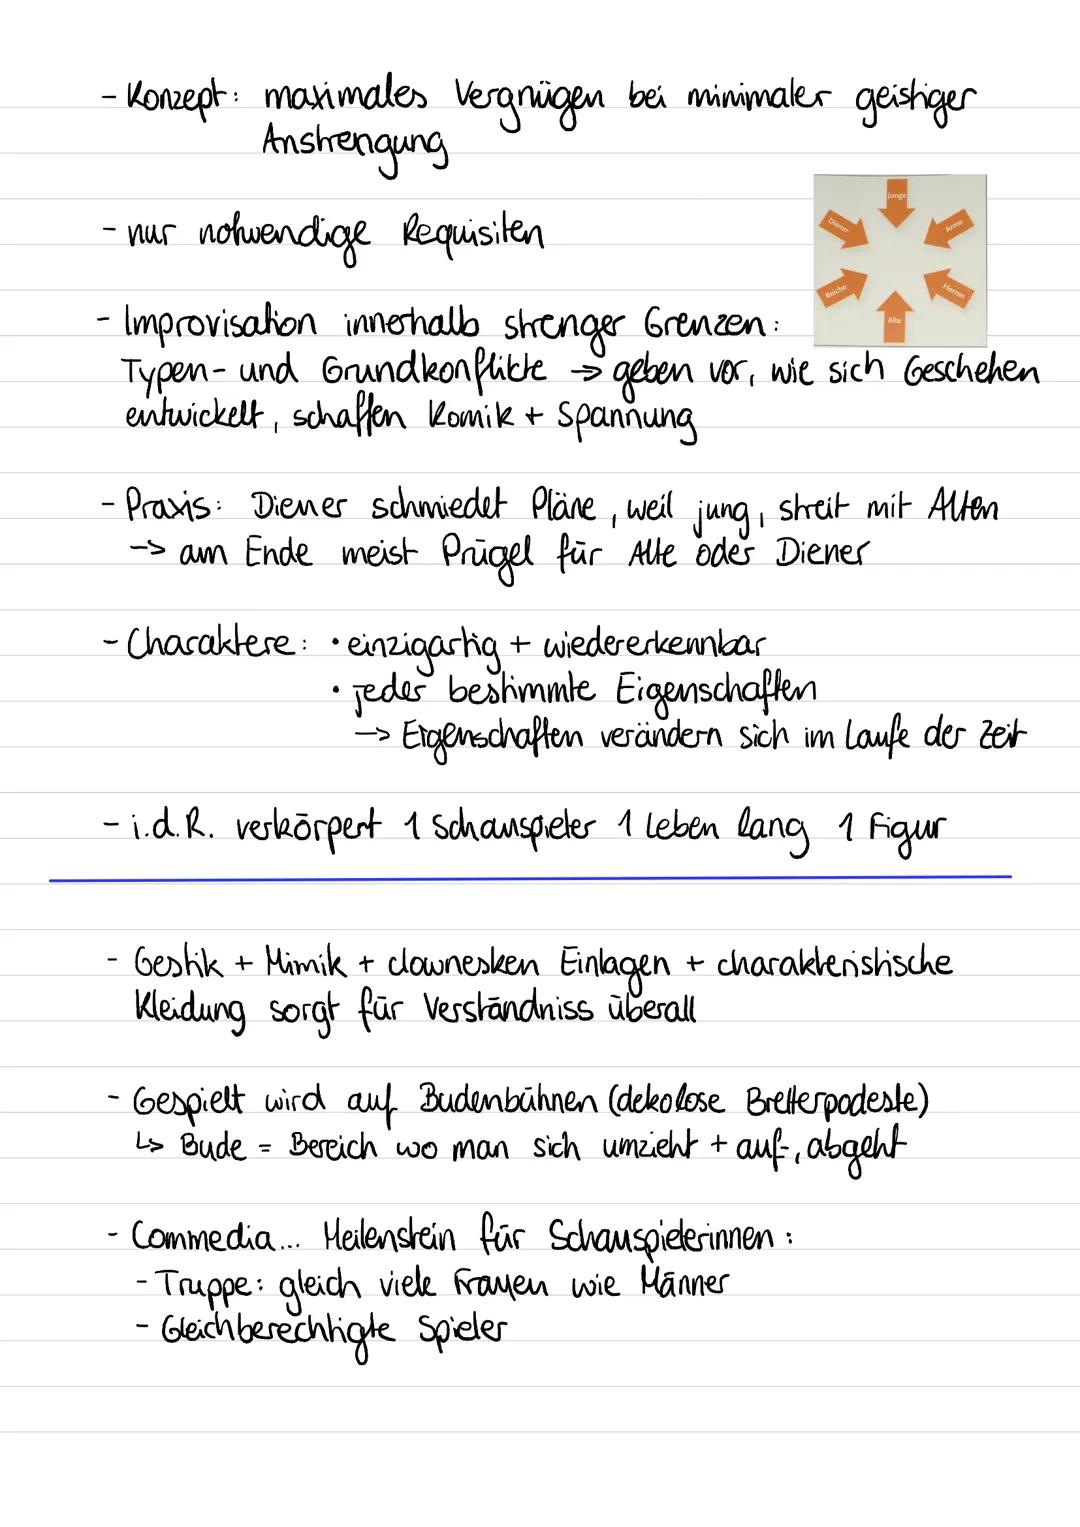 - Konzept: maximales Vergnügen bei minimaler geistiger
Anstrengung
- nur notwendige Requisiten
Junge
Diener
Arme
Reiche
Herren
Alte
- Improvisation innerhalb strenger Grenzen:
Typen- und Grundkonflikte -> geben vor, wie sich Geschehen
entwickelt, schaffen Komik + Spannung
- Praxis: Diener schmiedet Pläne, weil jung, streit mit Alten
-> am Ende meist Prügel für Alte oder Diener
- Charaktere: • einzigartig + wiedererkennbar
• jeder bestimmte Eigenschaften
-> Eigenschaften verändern sich im Laufe der Zeit
- i.d.R. verkörpert 1 Schauspieler 1 Leben lang 1 Figur
- Gestik + Mimik + clownesken Einlagen + charakteristische
Kleidung sorgt für Verständniss überall
- Gespielt wird auf Budenbühnen (dekolose Bretterpodeste)
↳ Bude = Bereich wo man sich umzieht + auf-, abgeht
- Commedia... Meilenstein für Schauspielerinnen:
- Truppe: gleich viele Frauen wie Männer
- Gleichberechtigte Spieler